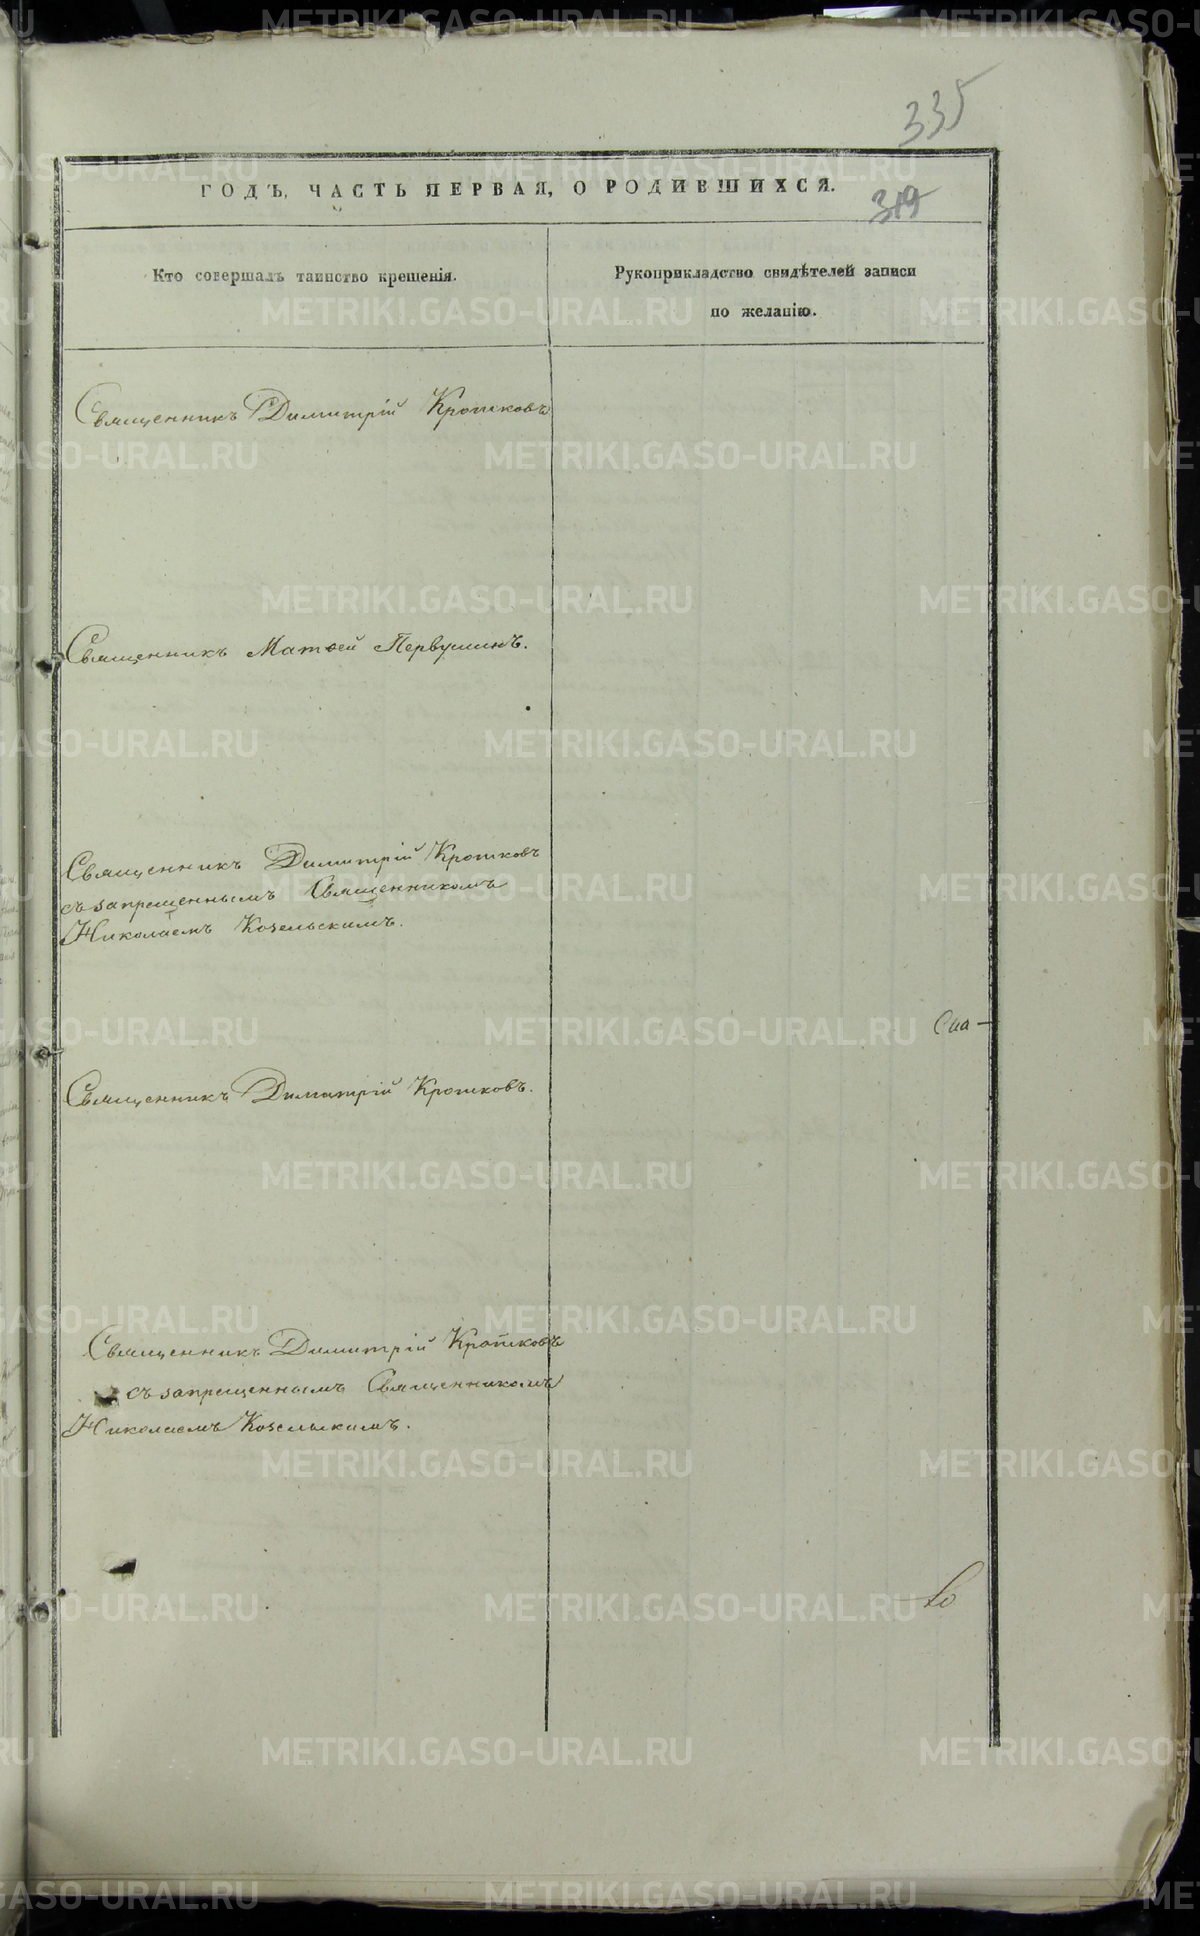 335
ГОДЪ, ЧАСТЬ ПЕРВАЯ, О РОДИВШИХСЯ.
319
Кто совершалъ таинство крещенія.
Рукоприкладство свидѣтелей записи
по желанію.
Священникъ Димитрій Кротковъ
Священникъ Матвей Первушинъ.
Священникъ Димитрій Кротковъ
съ запрещеннымъ Священникомъ
Николаемъ Козельскимъ.
Священникъ Димитрій Кротковъ.
Священникъ Димитрій Кротковъ
съ запрещеннымъ Священникомъ
Николаемъ Козельскимъ.
METRIKI.GASO-URAL.RU